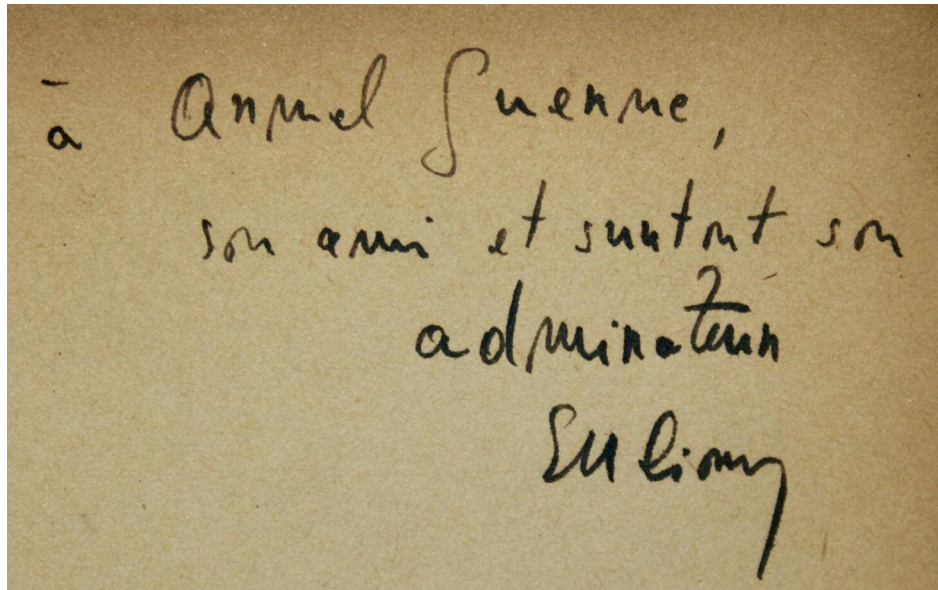 à Armel Guerne,
son ami et surtout son
admirateur
EM Cioran